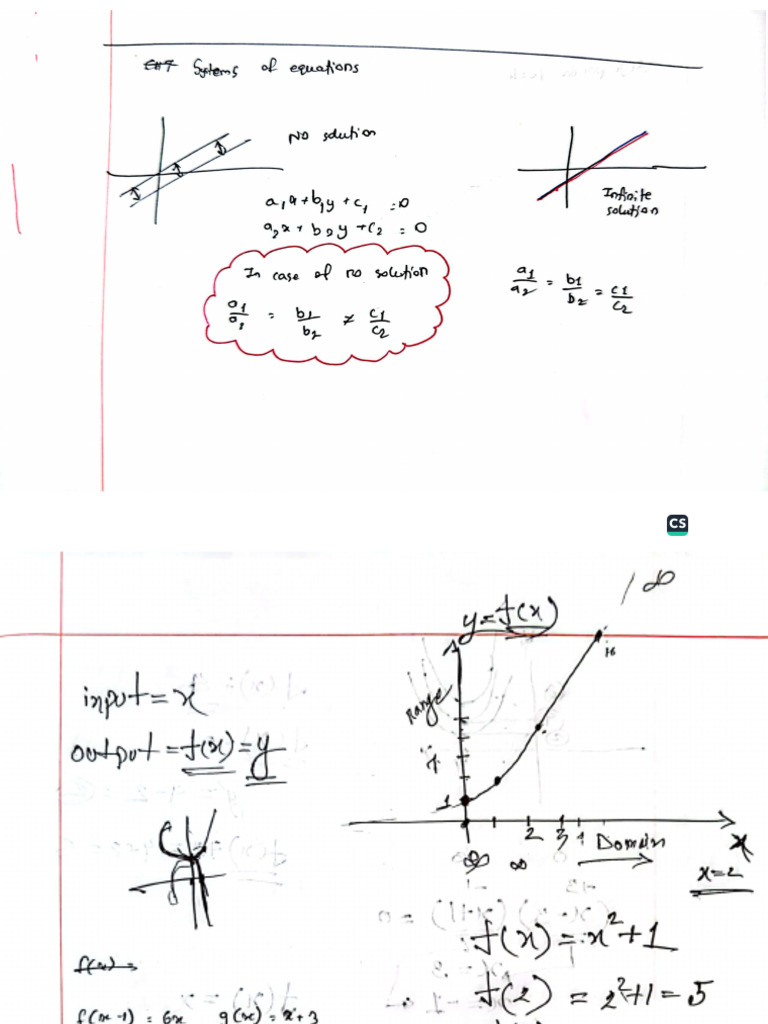 Systems of equations
No solution
a₁x+b₁y+c₁=0
a₂x+b₂y+c₂=0
In case of no solution
a₁/a₂ = b₁/b₂ ≠ c₁/c₂
Infinite
solution
a₁/a₂ = b₁/b₂ = c₁/c₂
CS
y=f(x)
∞
input=x
output=f(x)=y
Range
1
2 3 4
Domain
x
∞
x=2
f(x)=x²+1
f(2)=2²+1=5
f(x)=
f(x-1)=6x g(x)=x+3